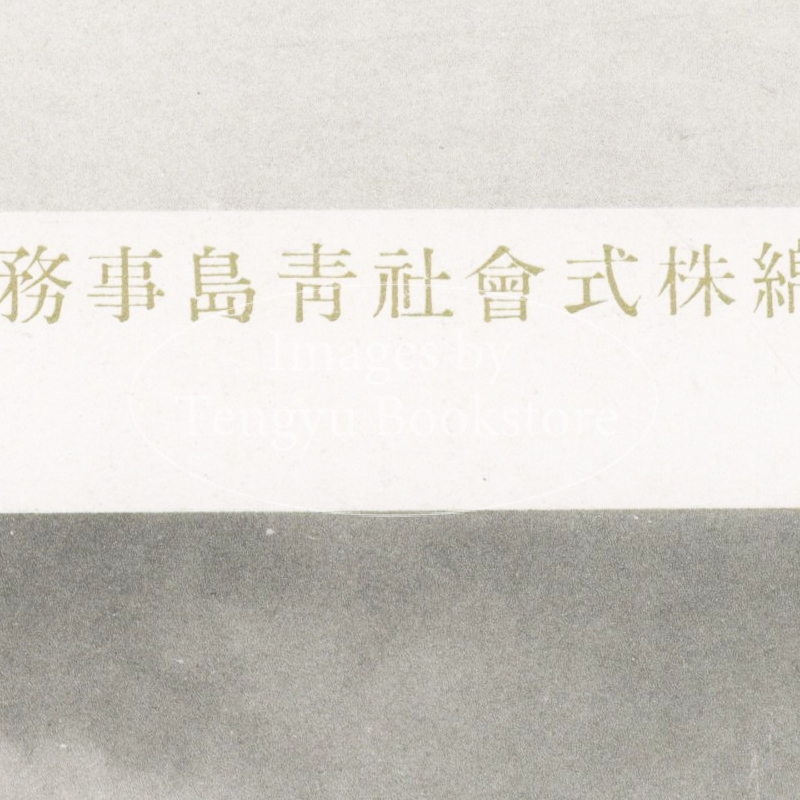 綿株式會社靑島事務
Images by
Tengyu Bookstore